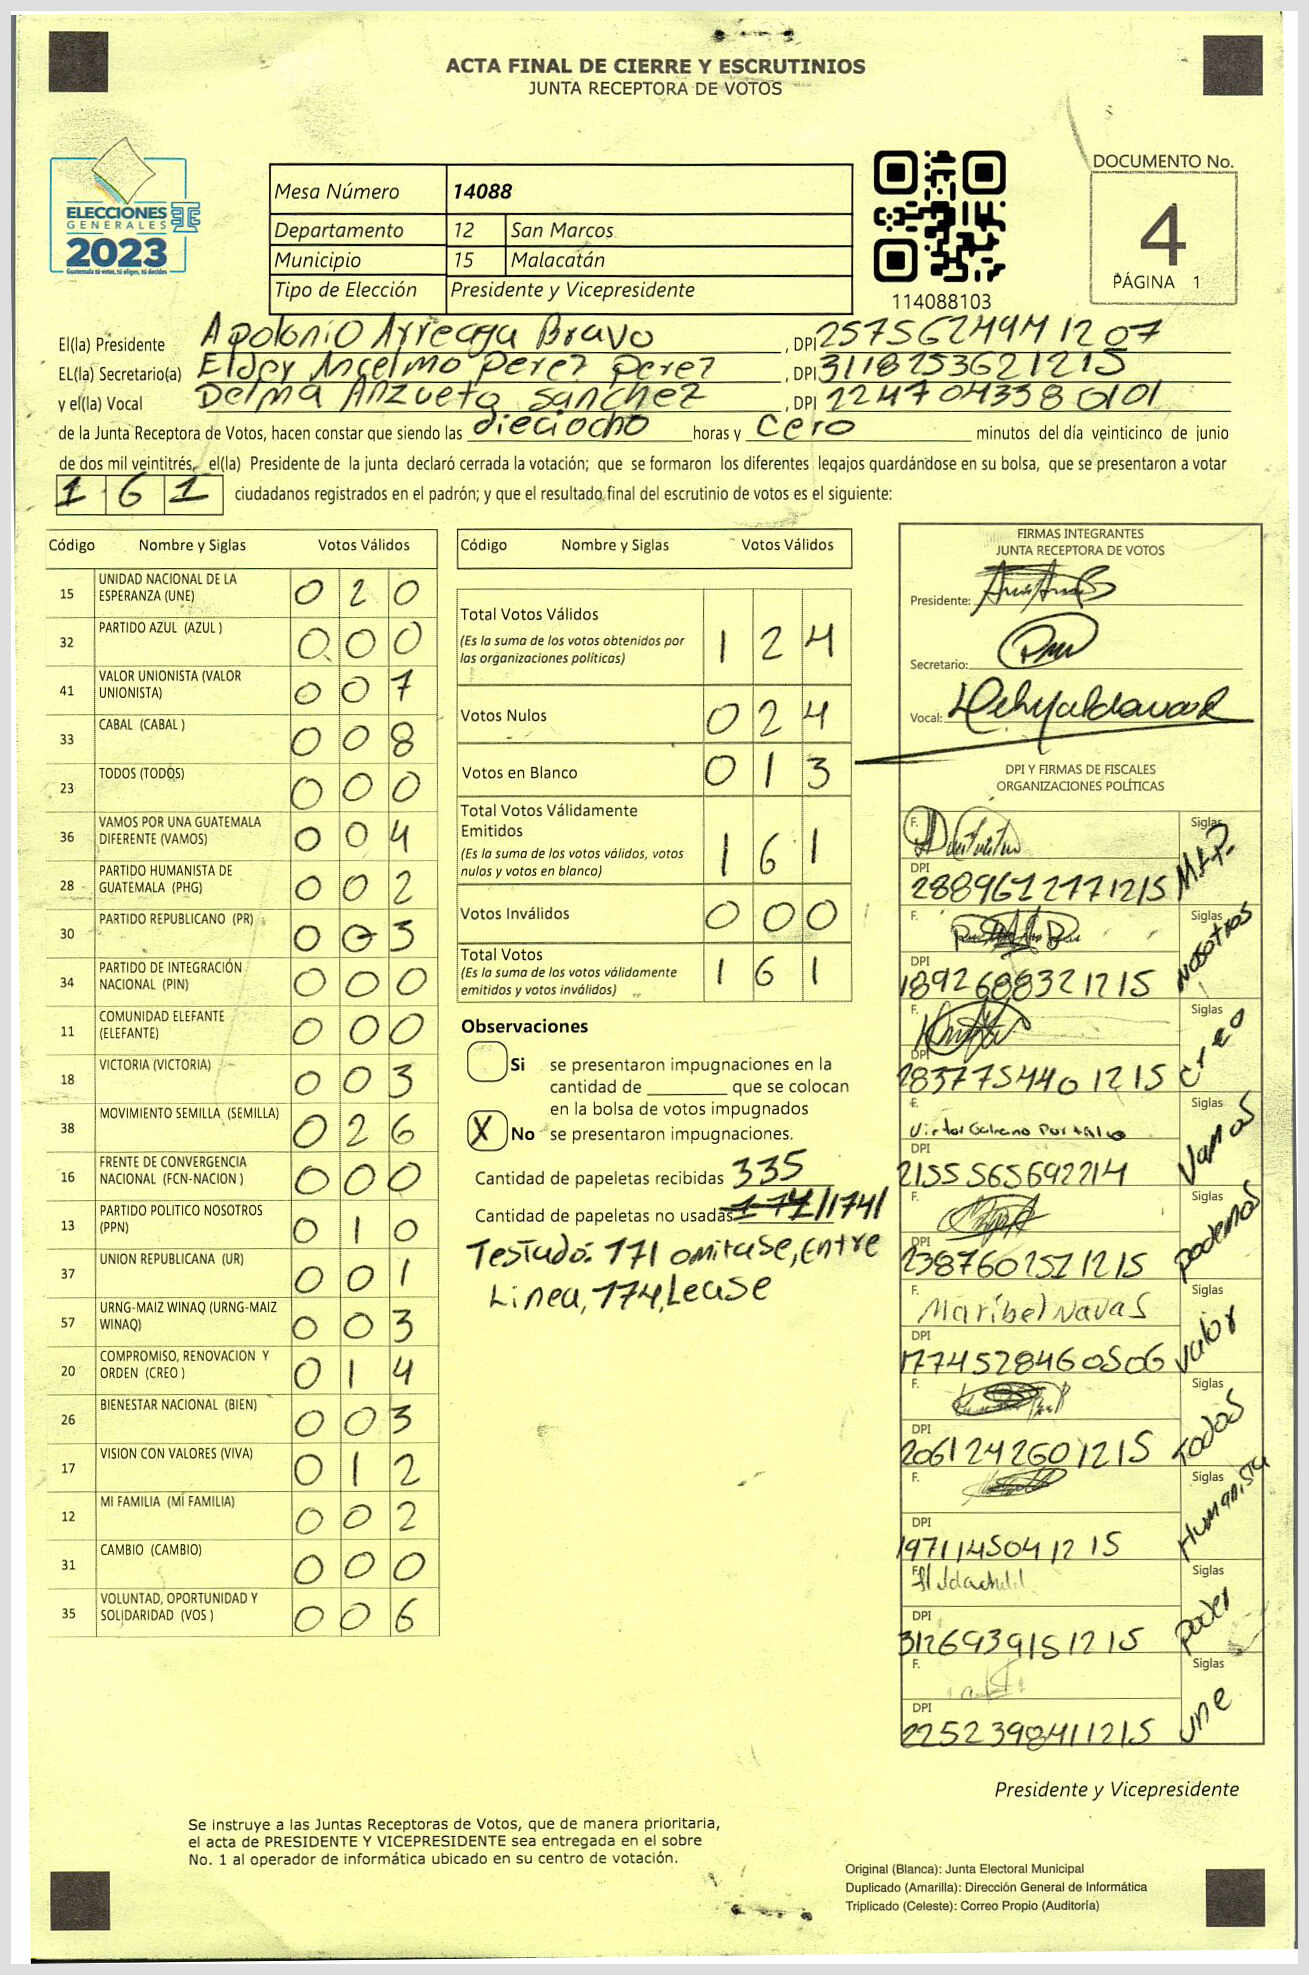 ACTA FINAL DE CIERRE Y ESCRUTINIOS
JUNTA RECEPTORA DE VOTOS
ELECCIONES
GENERALES
2023
Guatemala tú votas, tú eliges, tú decides
Mesa Número 14088
Departamento 12 San Marcos
Municipio 15 Malacatán
Tipo de Elección Presidente y Vicepresidente
114088103
DOCUMENTO No.
4
PÁGINA 1
El(la) Presidente Apolonio Arreaga Bravo, DPI 2575624941207
EL(la) Secretario(a) Elder Ancelmo Perez Perez, DPI 3118253621215
y el(la) Vocal Delma Anzueto Sanchez, DPI 2247043380101
de la Junta Receptora de Votos, hacen constar que siendo las dieciocho horas y cero minutos del día veinticinco de junio
de dos mil veintitrés, el(la) Presidente de la junta declaró cerrada la votación; que se formaron los diferentes legajos guardándose en su bolsa, que se presentaron a votar
161 ciudadanos registrados en el padrón; y que el resultado final del escrutinio de votos es el siguiente:
Código Nombre y Siglas Votos Válidos
15 UNIDAD NACIONAL DE LA ESPERANZA (UNE) 0 2 0
32 PARTIDO AZUL (AZUL ) 0 0 0
41 VALOR UNIONISTA (VALOR UNIONISTA) 0 0 7
33 CABAL (CABAL ) 0 0 8
23 TODOS (TODOS) 0 0 0
36 VAMOS POR UNA GUATEMALA DIFERENTE (VAMOS) 0 0 4
28 PARTIDO HUMANISTA DE GUATEMALA (PHG) 0 0 2
30 PARTIDO REPUBLICANO (PR) 0 0 3
34 PARTIDO DE INTEGRACIÓN NACIONAL (PIN) 0 0 0
11 COMUNIDAD ELEFANTE (ELEFANTE) 0 0 0
18 VICTORIA (VICTORIA) 0 0 3
38 MOVIMIENTO SEMILLA (SEMILLA) 0 2 6
16 FRENTE DE CONVERGENCIA NACIONAL (FCN-NACION ) 0 0 0
13 PARTIDO POLITICO NOSOTROS (PPN) 0 1 0
37 UNION REPUBLICANA (UR) 0 0 1
57 URNG-MAIZ WINAQ (URNG-MAIZ WINAQ) 0 0 3
20 COMPROMISO, RENOVACION Y ORDEN (CREO ) 0 1 4
26 BIENESTAR NACIONAL (BIEN) 0 0 3
17 VISION CON VALORES (VIVA) 0 1 2
12 MI FAMILIA (MI FAMILIA) 0 0 2
31 CAMBIO (CAMBIO) 0 0 0
35 VOLUNTAD, OPORTUNIDAD Y SOLIDARIDAD (VOS ) 0 0 6
Código Nombre y Siglas Votos Válidos
Total Votos Válidos 1 2 4
(Es la suma de los votos obtenidos por
las organizaciones políticas)
Votos Nulos 0 2 4
Votos en Blanco 0 1 3
Total Votos Válidamente
Emitidos 1 6 1
(Es la suma de los votos válidos, votos
nulos y votos en blanco)
Votos Inválidos 0 0 0
Total Votos 1 6 1
(Es la suma de los votos válidamente
emitidos y votos inválidos)
Observaciones
Si se presentaron impugnaciones en la
cantidad de ________ que se colocan
en la bolsa de votos impugnados
X No se presentaron impugnaciones.
Cantidad de papeletas recibidas 335
Cantidad de papeletas no usadas 171 //174/
Testado: 171 omitase, Entre
Linea, 174, Lease
FIRMAS INTEGRANTES
JUNTA RECEPTORA DE VOTOS
Presidente:
Secretario:
Vocal:
DPI Y FIRMAS DE FISCALES
ORGANIZACIONES POLÍTICAS
F. Siglas M.L.P.
DPI 2889612771215
F. Siglas Nosotros
DPI 1892688321215
F. Siglas creo
DPI 2837754401215
F. Victor Siglas Vamos
DPI 2155565692214
F. Siglas podemos
DPI 2387602521215
F. Maribel Navas Siglas Valor
DPI 1774528460506
F. Siglas Todos
DPI 2061242601215
F. Siglas Humanista
DPI 1971145041215
F. Siglas poder
DPI 3126939151215
F. Siglas une
DPI 2252398411215
Presidente y Vicepresidente
Se instruye a las Juntas Receptoras de Votos, que de manera prioritaria,
el acta de PRESIDENTE Y VICEPRESIDENTE sea entregada en el sobre
No. 1 al operador de informática ubicado en su centro de votación.
Original (Blanca): Junta Electoral Municipal
Duplicado (Amarilla): Dirección General de Informática
Triplicado (Celeste): Correo Propio (Auditoría)